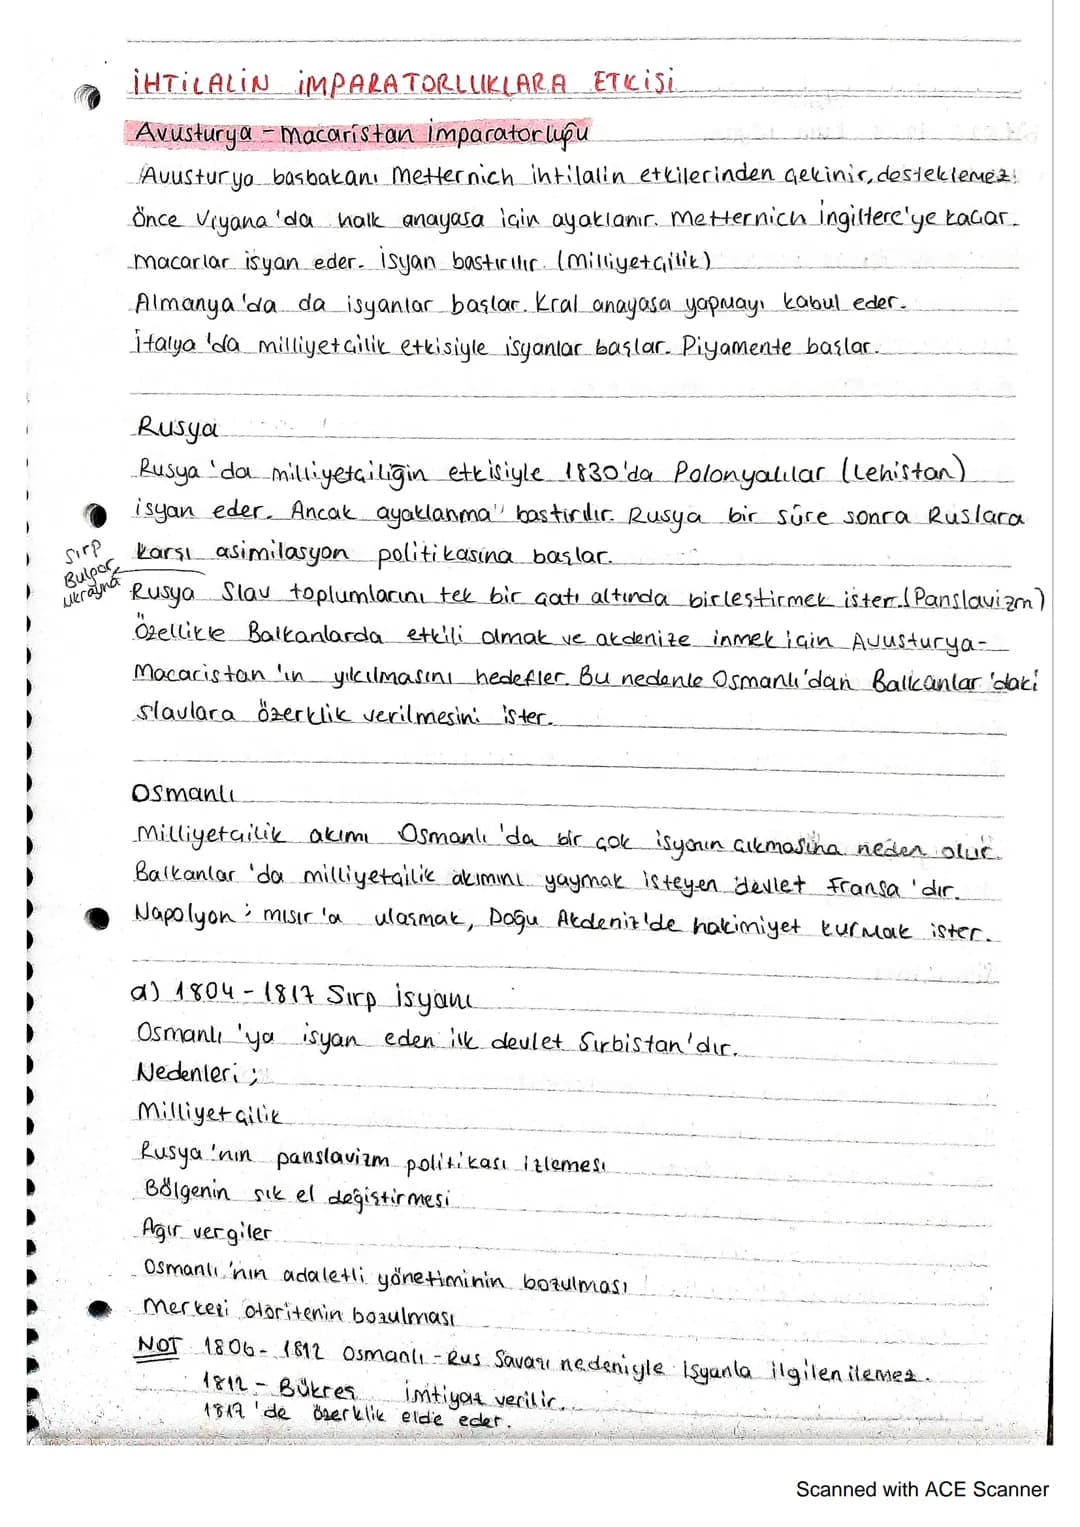 İHTİLALİN İMPARATORLUKLARA ETKİSİ
Avusturya - Macaristan İmparatorluğu
Avusturya başbakanı Metternich ihtilalin etkilerinden çekinir, desteklemez.
Önce Viyana'da halk anayasa için ayaklanır. Metternich İngiltere'ye kaçar.
Macarlar isyan eder. İsyan bastırılır. (Milliyetçilik)
Almanya'da da isyanlar başlar. Kral anayasa yapmayı kabul eder.
İtalya'da milliyetçilik etkisiyle isyanlar başlar. Piyamente başlar.
Rusya
Rusya'da milliyetçiliğin etkisiyle 1830'da Polonyalılar (Lehistan)
isyan eder. Ancak ayaklanma bastırılır. Rusya bir süre sonra Ruslara
karşı asimilasyon politikasına başlar.
Sırp
Bulgar
Ukrayna
Rusya Slav toplumlarını tek bir çatı altında birleştirmek ister. (Panslavizm)
Özellikle Balkanlarda etkili olmak ve akdenize inmek için Avusturya-
Macaristan'ın yıkılmasını hedefler. Bu nedenle Osmanlı'dan Balkanlar'daki
slavlara özerklik verilmesini ister.
Osmanlı
Milliyetçilik akımı Osmanlı'da bir çok isyanın çıkmasına neden olur.
Balkanlar'da milliyetçilik akımını yaymak isteyen devlet Fransa'dır.
Napolyon ; mısır'a ulaşmak, Doğu Akdeniz'de hakimiyet kurmak ister.
a) 1804 - 1817 Sırp isyanı
Osmanlı'ya isyan eden ilk devlet Sırbistan'dır.
Nedenleri ;
Milliyetçilik
Rusya'nın panslavizm politikası izlemesi
Bölgenin sık el değiştirmesi
Ağır vergiler
Osmanlı'nın adaletli yönetiminin bozulması
Merkezi otoritenin bozulması
NOT 1806 - 1812 Osmanlı - Rus Savaşı nedeniyle isyanla ilgilenilemez.
1812 - Bükreş imtiyaz verilir.
1817'de özerklik elde eder.
Scanned with ACE Scanner